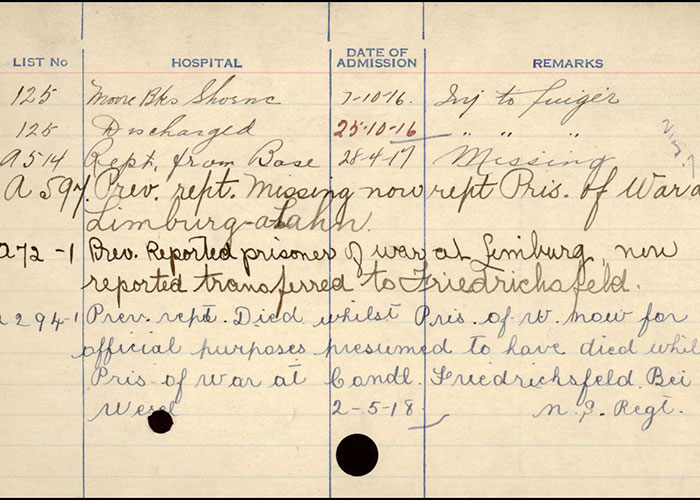 LIST No HOSPITAL DATE OF ADMISSION REMARKS
125 Moore Bks Shornc 7-10-16. Inj to finger
125 Discharged 25-10-16 " " "
A514 Rept. from Base 28-4-17 Missing
A 597. Prev. rept. Missing now rept Pris. of War a
Limburg-a-Lahn.
a72-1 Prev. Reported prisoner of war at Limburg, now
reported transferred to Friedrichsfeld.
a 294-1 Prev. rept. Died whilst Pris. of W. now for
official purposes presumed to have died whil
Pris. of War at Candt. Friedrichsfeld Bei
Wesel 2-5-18. N. S. Regt.